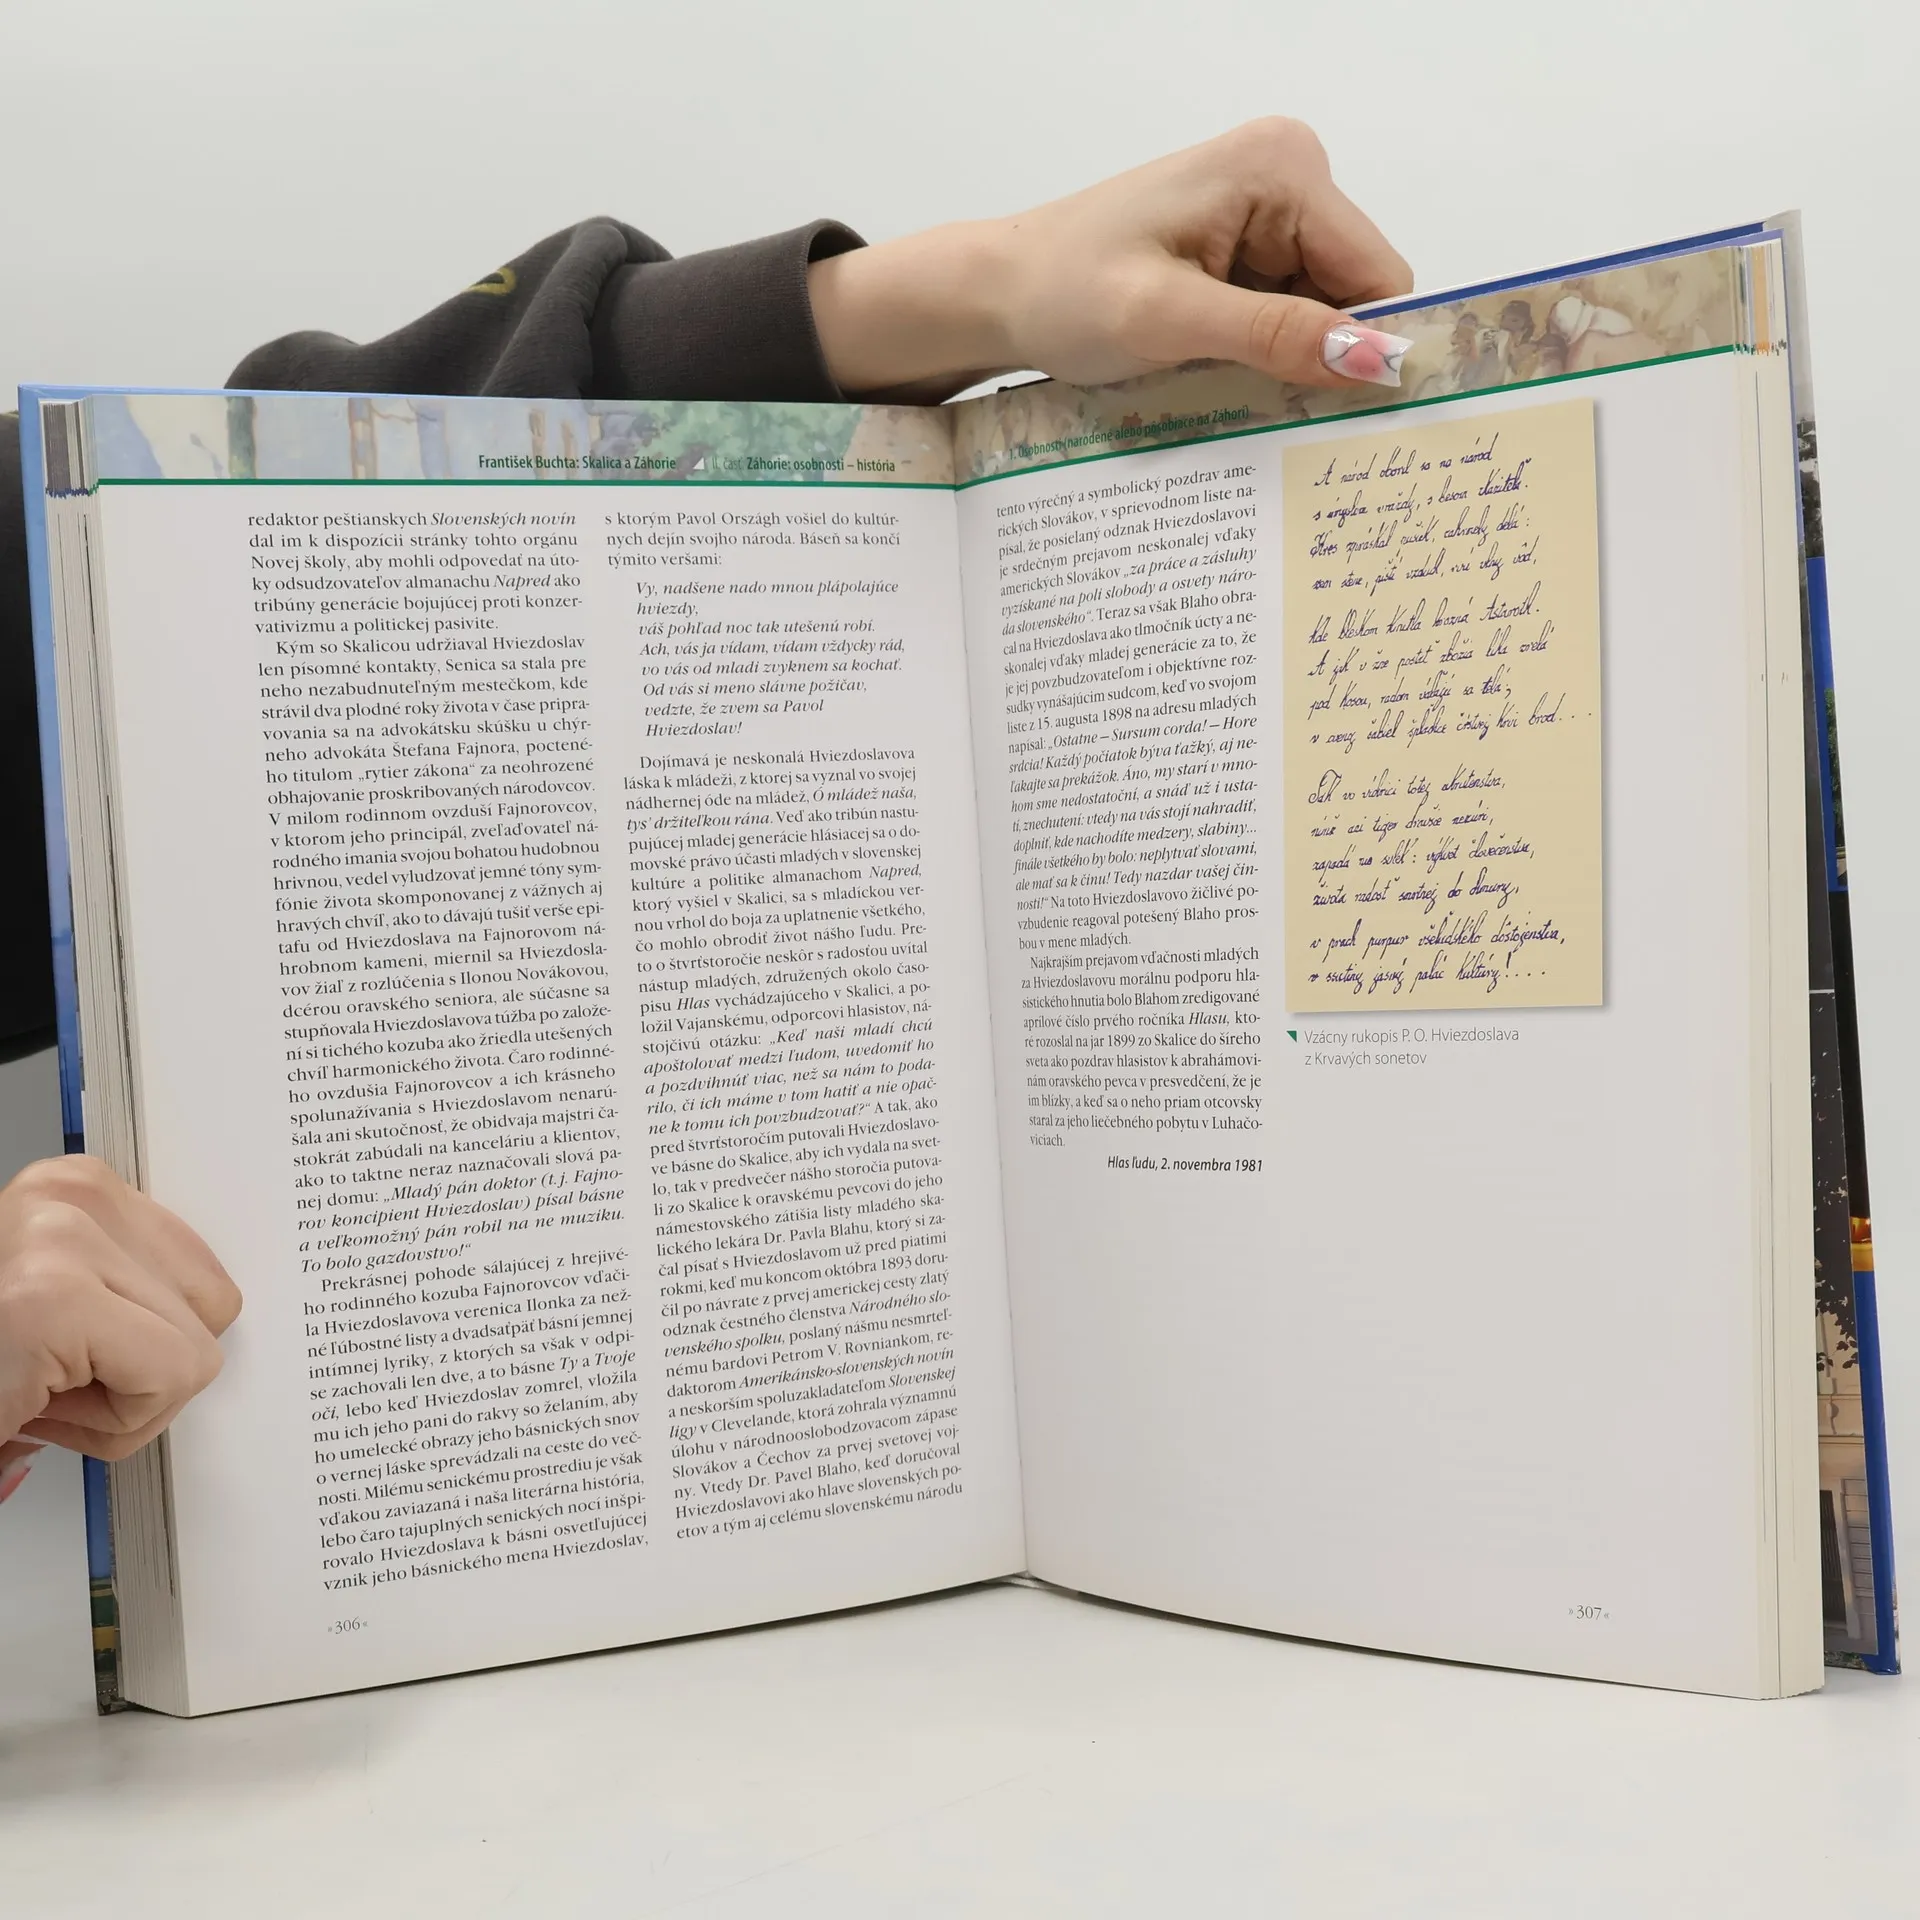 František Buchta: Skalica a Záhorie II. časť Záhorie: osobnosti – história
redaktor peštianskych Slovenských novín
dal im k dispozícii stránky tohto orgánu
Novej školy, aby mohli odpovedať na úto-
ky odsudzovateľov almanachu Napred ako
tribúny generácie bojujúcej proti konzer-
vativizmu a politickej pasivite.
Kým so Skalicou udržiaval Hviezdoslav
len písomné kontakty, Senica sa stala pre
neho nezabudnuteľným mestečkom, kde
strávil dva plodné roky života v čase pripra-
vovania sa na advokátsku skúšku u chýr-
neho advokáta Štefana Fajnora, poctené-
ho titulom „rytier zákona“ za neohrozené
obhajovanie proskribovaných národovcov.
V milom rodinnom ovzduší Fajnorovcov,
v ktorom jeho principál, zveľaďovateľ ná-
rodného imania svojou bohatou hudobnou
hrivnou, vedel vyludzovať jemné tóny sym-
fónie života skomponovanej z vážnych aj
hravých chvíľ, ako to dávajú tušiť verše epi-
tafu od Hviezdoslava na Fajnorovom ná-
hrobnom kameni, miernil sa Hviezdosla-
vov žiaľ z rozlúčenia s Ilonou Novákovou,
dcérou oravského seniora, ale súčasne sa
stupňovala Hviezdoslavova túžba po založe-
ní si tichého kozuba ako žriedla utešených
chvíľ harmonického života. Čaro rodinné-
ho ovzdušia Fajnorovcov a ich krásneho
spolunažívania s Hviezdoslavom nenarú-
šala ani skutočnosť, že obidvaja majstri ča-
stokrát zabúdali na kanceláriu a klientov,
ako to taktne neraz naznačovali slová pa-
nej domu: „Mladý pán doktor (t. j. Fajno-
rov koncipient Hviezdoslav) písal básne
a veľkomožný pán robil na ne muziku.
To bolo gazdovstvo!“
Prekrásnej pohode sálajúcej z hrejivé-
ho rodinného kozuba Fajnorovcov vďači-
la Hviezdoslavova verenica Ilonka za než-
né ľúbostné listy a dvadsaťpäť básní jemnej
intímnej lyriky, z ktorých sa však v odpi-
se zachovali len dve, a to básne Ty a Tvoje
oči, lebo keď Hviezdoslav zomrel, vložila
mu ich jeho pani do rakvy so želaním, aby
ho umelecké obrazy jeho básnických snov
o vernej láske sprevádzali na ceste do več-
nosti. Milému senickému prostrediu je však
vďakou zaviazaná i naša literárna história,
lebo čaro tajuplných senických nocí inšpi-
rovalo Hviezdoslava k básni osvetľujúcej
vznik jeho básnického mena Hviezdoslav,
s ktorým Pavol Országh vošiel do kultúr-
nych dejín svojho národa. Báseň sa končí
týmito veršami:
Vy, nadšene nado mnou plápolajúce
hviezdy,
váš pohľad noc tak utešenú robí.
Ach, vás ja vídam, vídam vždycky rád,
vo vás od mladi zvyknem sa kochať.
Od vás si meno slávne požičav,
vedzte, že zvem sa Pavol
Hviezdoslav!
Dojímavá je neskonalá Hviezdoslavova
láska k mládeži, z ktorej sa vyznal vo svojej
nádhernej óde na mládež, Ó mládež naša,
tys' držiteľkou rána. Veď ako tribún nastu-
pujúcej mladej generácie hlásiacej sa o do-
movské právo účasti mladých v slovenskej
kultúre a politike almanachom Napred,
ktorý vyšiel v Skalici, sa s mladíckou ver-
nou vrhol do boja za uplatnenie všetkého,
čo mohlo obrodiť život nášho ľudu. Pre-
to o štvrťstoročie neskôr s radosťou uvítal
nástup mladých, združených okolo časo-
pisu Hlas vychádzajúceho v Skalici, a po-
ložil Vajanskému, odporcovi hlasistov, ná-
stojčivú otázku: „Keď naši mladí chcú
apoštolovať medzi ľudom, uvedomiť ho
a pozdvihnúť viac, než sa nám to poda-
rilo, či ich máme v tom hatiť a nie opač-
ne k tomu ich povzbudzovať?“ A tak, ako
pred štvrťstoročím putovali Hviezdoslavo-
ve básne do Skalice, aby ich vydala na svet-
lo, tak v predvečer nášho storočia putova-
li zo Skalice k oravskému pevcovi do jeho
námestovského zátišia listy mladého ska-
lického lekára Dr. Pavla Blahu, ktorý si za-
čal písať s Hviezdoslavom už pred piatimi
rokmi, keď mu koncom októbra 1893 doru-
čil po návrate z prvej americkej cesty zlatý
odznak čestného členstva Národného slo-
venského spolku, poslaný nášmu nesmrteľ-
nému bardovi Petrom V. Rovniankom, re-
daktorom Amerikánsko-slovenských novín
a neskorším spoluzakladateľom Slovenskej
ligy v Clevelande, ktorá zohrala významnú
úlohu v národnooslobodzovacom zápase
Slovákov a Čechov za prvej svetovej voj-
ny. Vtedy Dr. Pavel Blaho, keď doručoval
Hviezdoslavovi ako hlave slovenských po-
etov a tým aj celému slovenskému národu
»306«
1. Osobnosti (narodené alebo pôsobiace na Záhorí)
tento výrečný a symbolický pozdrav ame-
rických Slovákov, v sprievodnom liste na-
písal, že posielaný odznak Hviezdoslavovi
je srdečným prejavom neskonalej vďaky
amerických Slovákov „za práce a zásluhy
vyzískané na poli slobody a osvety náro-
da slovenského“. Teraz sa však Blaho obra-
cal na Hviezdoslava ako tlmočník úcty a ne-
skonalej vďaky mladej generácie za to, že
je jej povzbudzovateľom i objektívne roz-
sudky vynášajúcim sudcom, keď vo svojom
liste z 15. augusta 1898 na adresu mladých
napísal: „Ostatne – Sursum corda! – Hore
srdcia! Každý počiatok býva ťažký, aj ne-
ľakajte sa prekážok. Áno, my starí v mno-
hom sme nedostatoční, a snáď už i usta-
tí, znechutení: vtedy na vás stojí nahradiť,
doplniť, kde nachodíte medzery, slabiny...
finále všetkého by bolo: neplytvať slovami,
ale mať sa k činu! Tedy nazdar vašej čin-
nosti!“ Na toto Hviezdoslavovo žičlivé po-
vzbudenie reagoval potešený Blaho pros-
bou v mene mladých.
Najkrajším prejavom vďačnosti mladých
za Hviezdoslavovu morálnu podporu hla-
sistického hnutia bolo Blahom zredigované
aprílové číslo prvého ročníka Hlasu, kto-
ré rozoslal na jar 1899 zo Skalice do šíreho
sveta ako pozdrav hlasistov k abrahámovi-
nám oravského pevca v presvedčení, že je
im blízky, a keď sa o neho priam otcovsky
staral za jeho liečebného pobytu v Luhačo-
viciach.
Hlas ľudu, 2. novembra 1981
A národ oboril sa na národ
s úmyslom vraždy, s besom
zem stene, piští vzduch, vrú vlny vôd,
kde bleskom
A jak v žne
pod kosou, radom váľajú sa telá;
v
Tak vo vidnici
života radosť smrtnej do
v prach purpur všeľudského dôstojenstva,
v jasný palác kultúry!....
Vzácny rukopis P. O. Hviezdoslava
z Krvavých sonetov
»307«